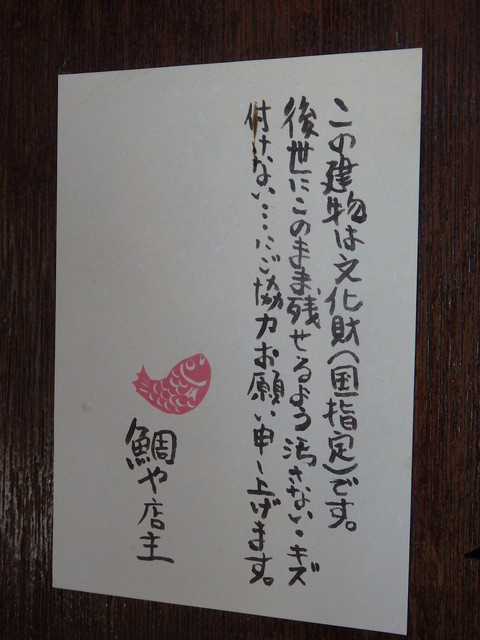 この建物は文化財(国指定)です。
後世にこのまま残せるよう汚さない・キズ
付けない…にご協力お願い申し上げます。
鯛や店主